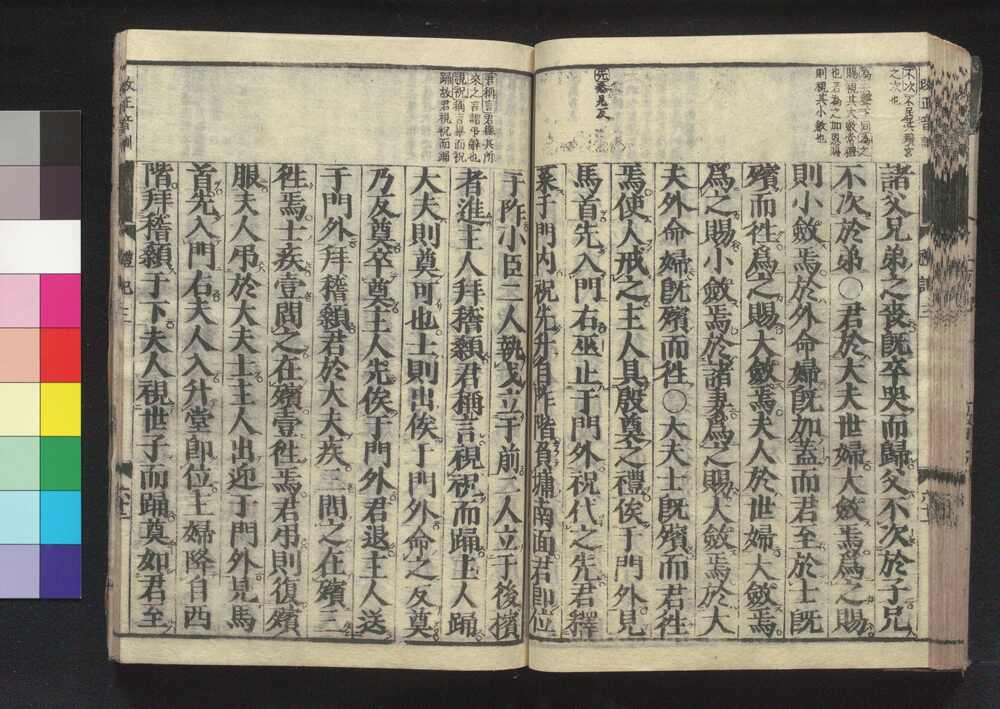 諸父兄弟之喪既卒哭而歸父不次於子兄
不次於弟○君於大夫世婦大斂焉爲之賜
則小斂焉於外命婦既加蓋而君至於士既
殯而徃爲之賜大斂焉夫人於世婦大斂焉
爲之賜小斂焉於諸妻爲之賜大斂焉於大
夫外命婦既殯而徃○大夫士既殯而君徃
焉使人戒之主人具殷奠之禮俟于門外見
馬首先入門右巫止于門外祝代之先君釋
菜于門内祝先升自阼階負墉南面君即位
于阼小臣二人執戈立于前二人立于後擯
者進主人拜稽顙君稱言視祝而踊主人踊
大夫則奠可也士則出俟于門外命之反奠
乃反奠卒奠主人先俟于門外君退主人送
于門外拜稽顙君於大夫疾三問之在殯三
徃焉士疾壹問之在殯壹徃焉君弔則復殯
服夫人弔於大夫士主人出迎于門外見馬
首先入門右夫人入升堂即位主婦降自西
階拜稽顙于下夫人視世子而踊奠如君至
不次不居其殯宮
之次也
則視其小斂也
君稱言君擧其所
來之言謂弔辭也
視祝稱言畢而祝
踊故君視祝而踊
改正音訓
禮記三